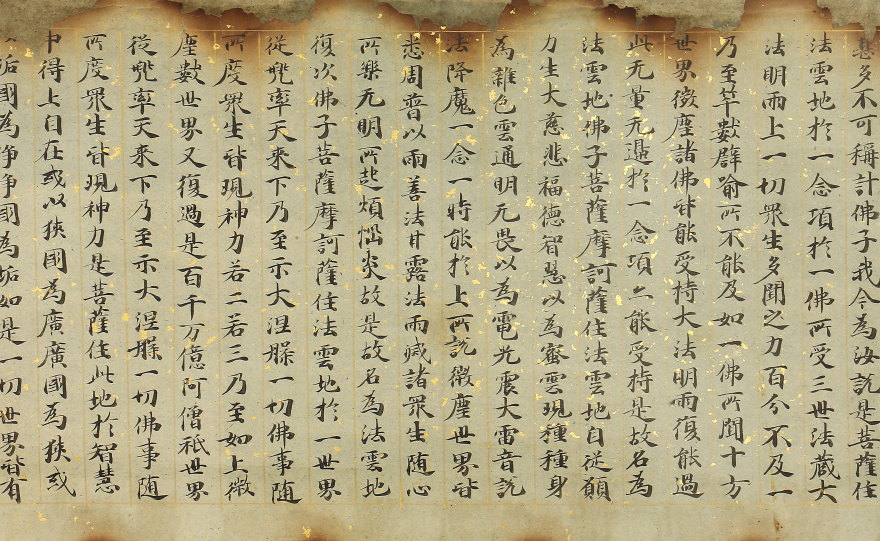 甚多不可稱計佛子我今為汝說是菩薩住
法雲地於一念項於一佛所受三世法藏大
法明雨上一切眾生多聞之力百分不及一
乃至筭數辟喻所不能及如一佛所聞十方
世界微塵諸佛皆能受持大法明雨復能過
此无量无邊於一念項亦能受持是故名為
法雲地佛子菩薩摩訶薩住法雲地自從願
力生大慈悲福德智慧以為密雲現種種身
為雜色雲通明无畏以為電光震大雷音說
法降魔一念一時能於上所說微塵世界皆
悉周普以雨善法甘露法雨滅諸眾生随心
所樂无明所起煩惱炎故是故名為法雲地
復次佛子菩薩摩訶薩住法雲地於一世界
從兜率天來下乃至示大涅槃一切佛事随
所度眾生皆現神力若二若三乃至如上微
塵數世界又復過是百千万億阿僧祇世界
從兜率天來下乃至示大涅槃一切佛事随
所度眾生皆現神力是菩薩住此地於智慧
中得上自在或以狹國為廣廣國為狹或
垢國為淨淨國為垢如是一切世界皆有